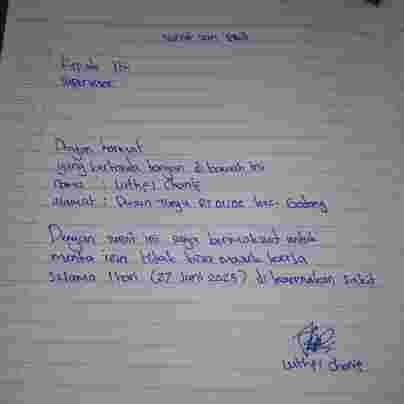 surat izin sakit
Kepada Yth
Supervisor
Dengan hormat
yang bertanda tangan di bawah ini
nama : Luther Chanie
alamat : Dusun RT 01/02 kec. Godong
Dengan surat ini saya bermaksud untuk
minta izin tidak bisa masuk kerja
selama 1 hari (27 Juni 2025) di karenakan sakit
Luther Chanie